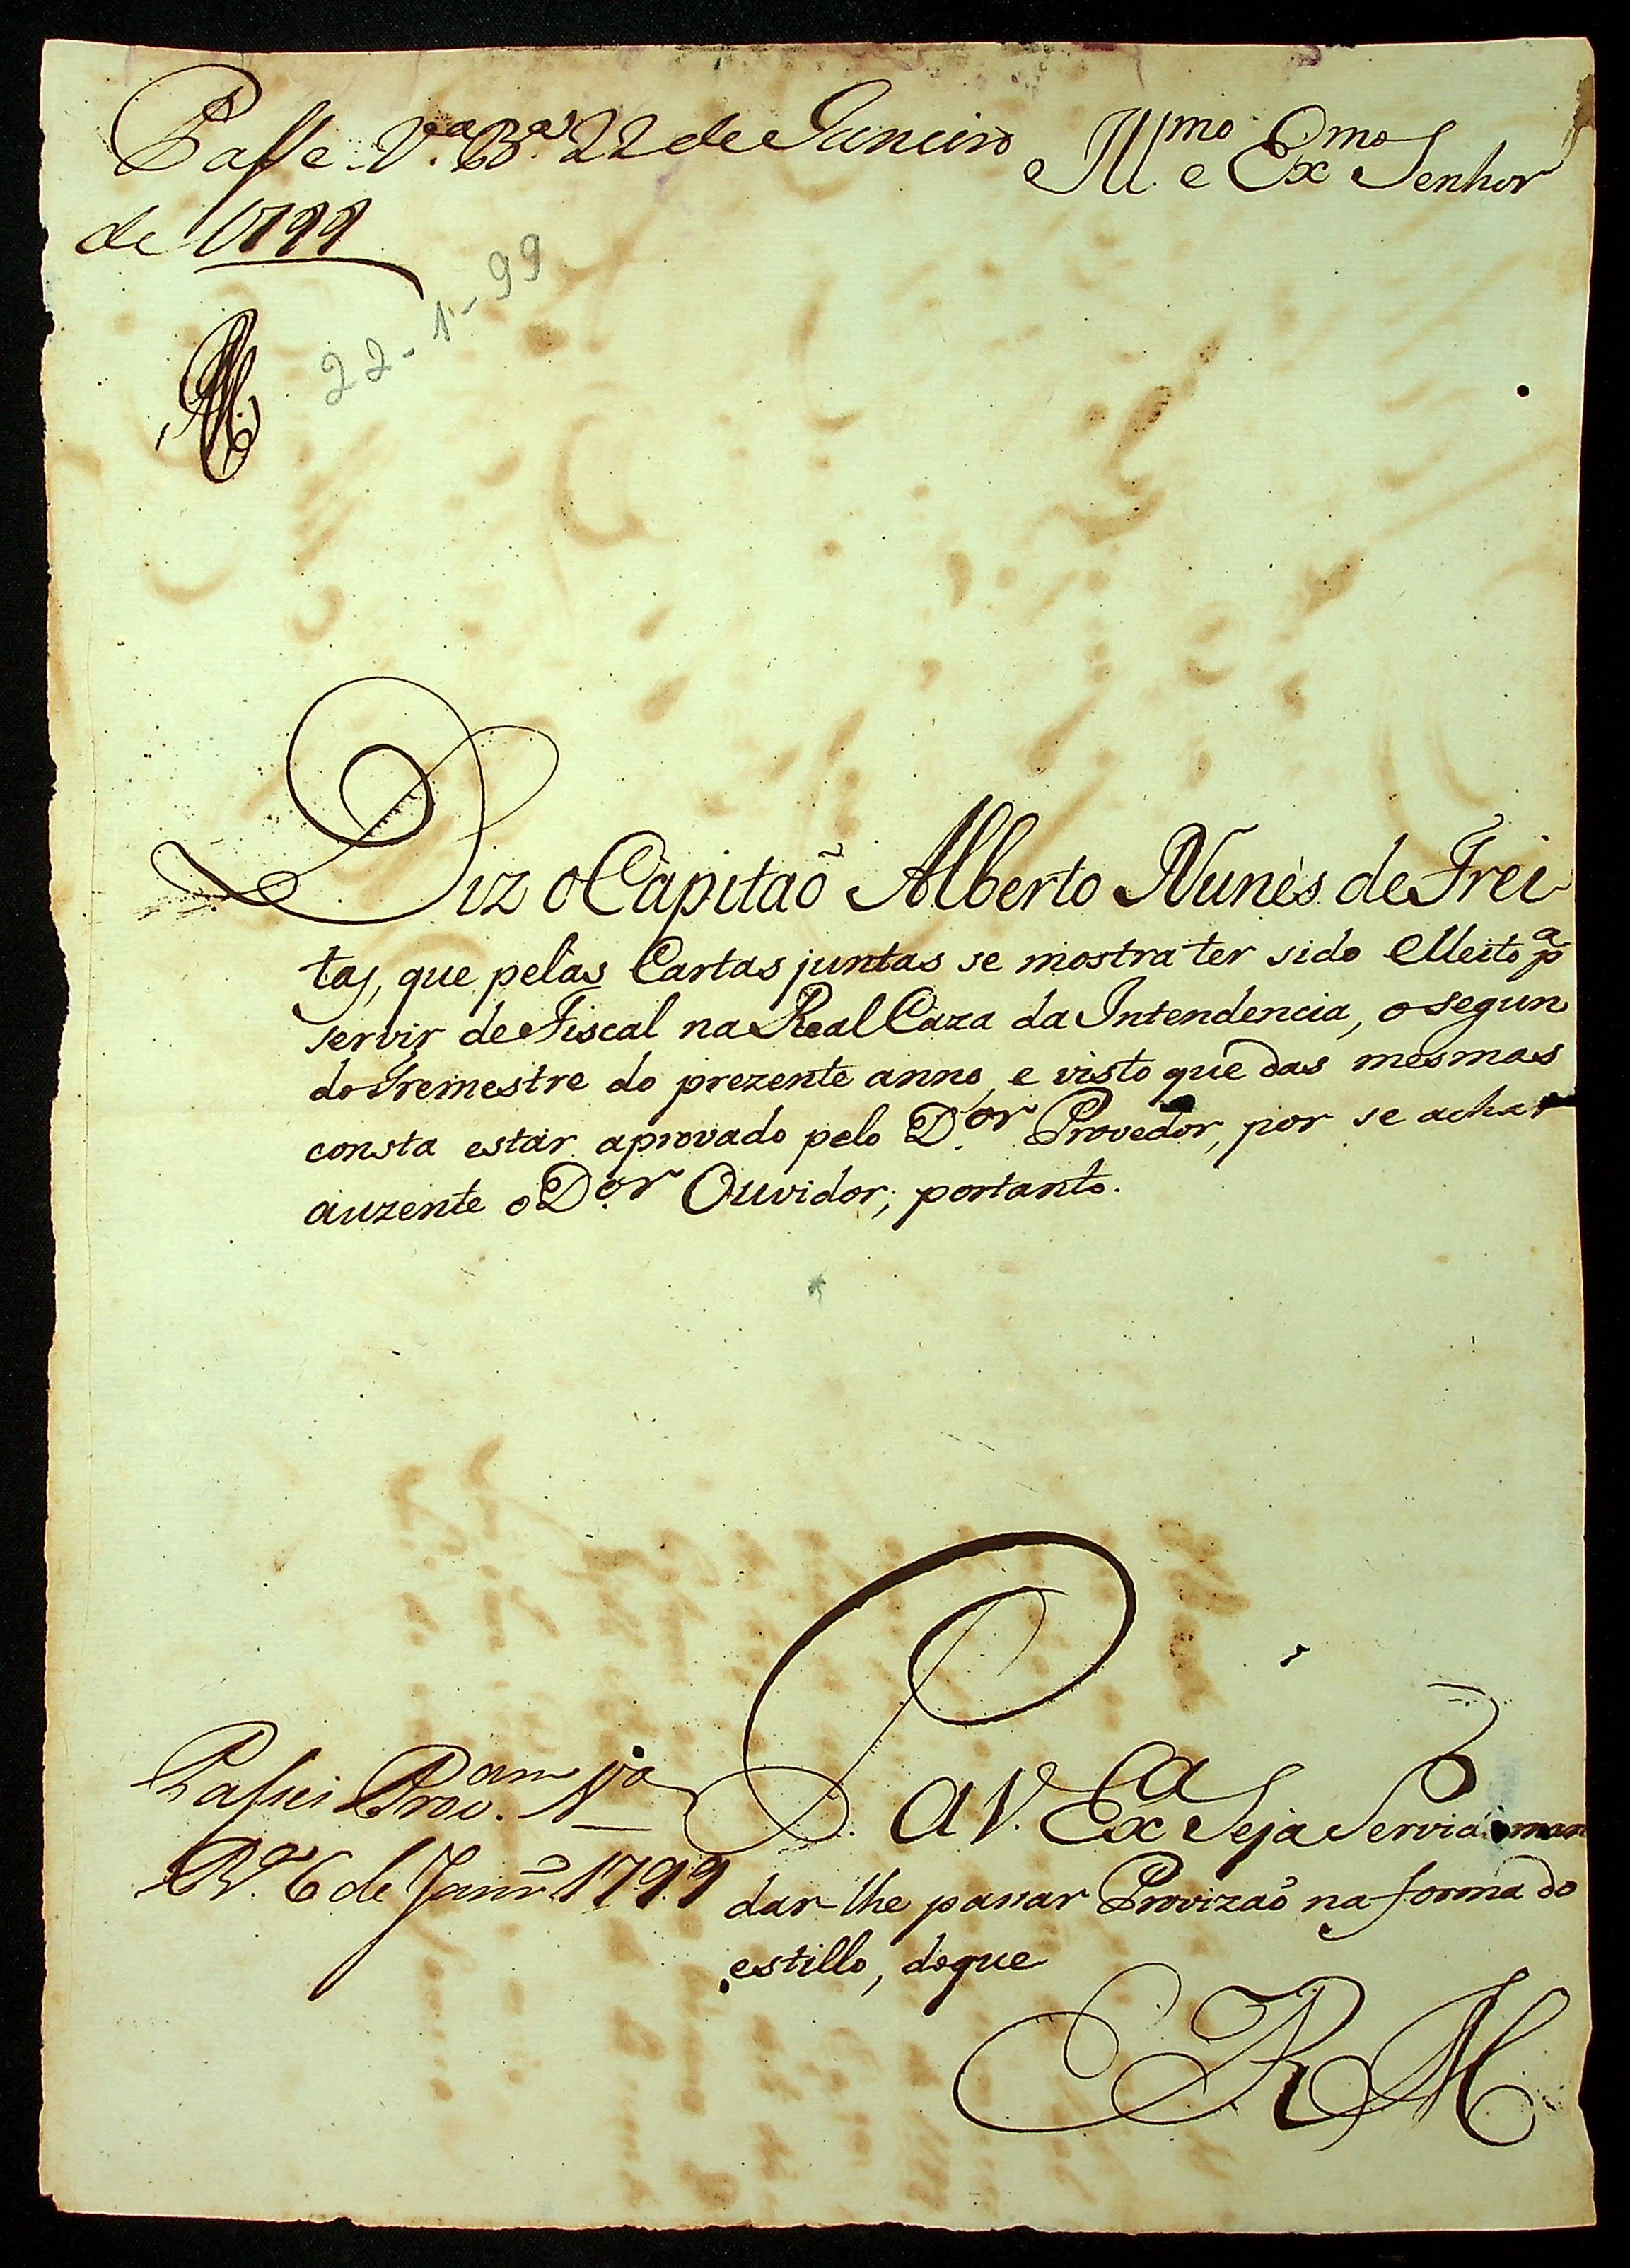 Passe. V.ª B.ª 22 de Janeiro
de 1799
Ill.mo e Ex.mo Senhor
22-1-99
Diz o Capitaõ Alberto Nunes de Frei
tas, que pelas Cartas juntas se mostra ter sido elleito pª
servir de Fiscal na Real Caza da Intendencia, o segun
do Tremestre do prezente anno, e visto que das mesmas
consta estar aprovado pelo D.or Provedor, por se achar
auzente o D.or Ouvidor; portanto.
P. a V. Exca Seja Servido man
dar-lhe passar Provizaõ na forma do
estillo, do que
E R M
Passei Prov.am
6 de Janrº 1799